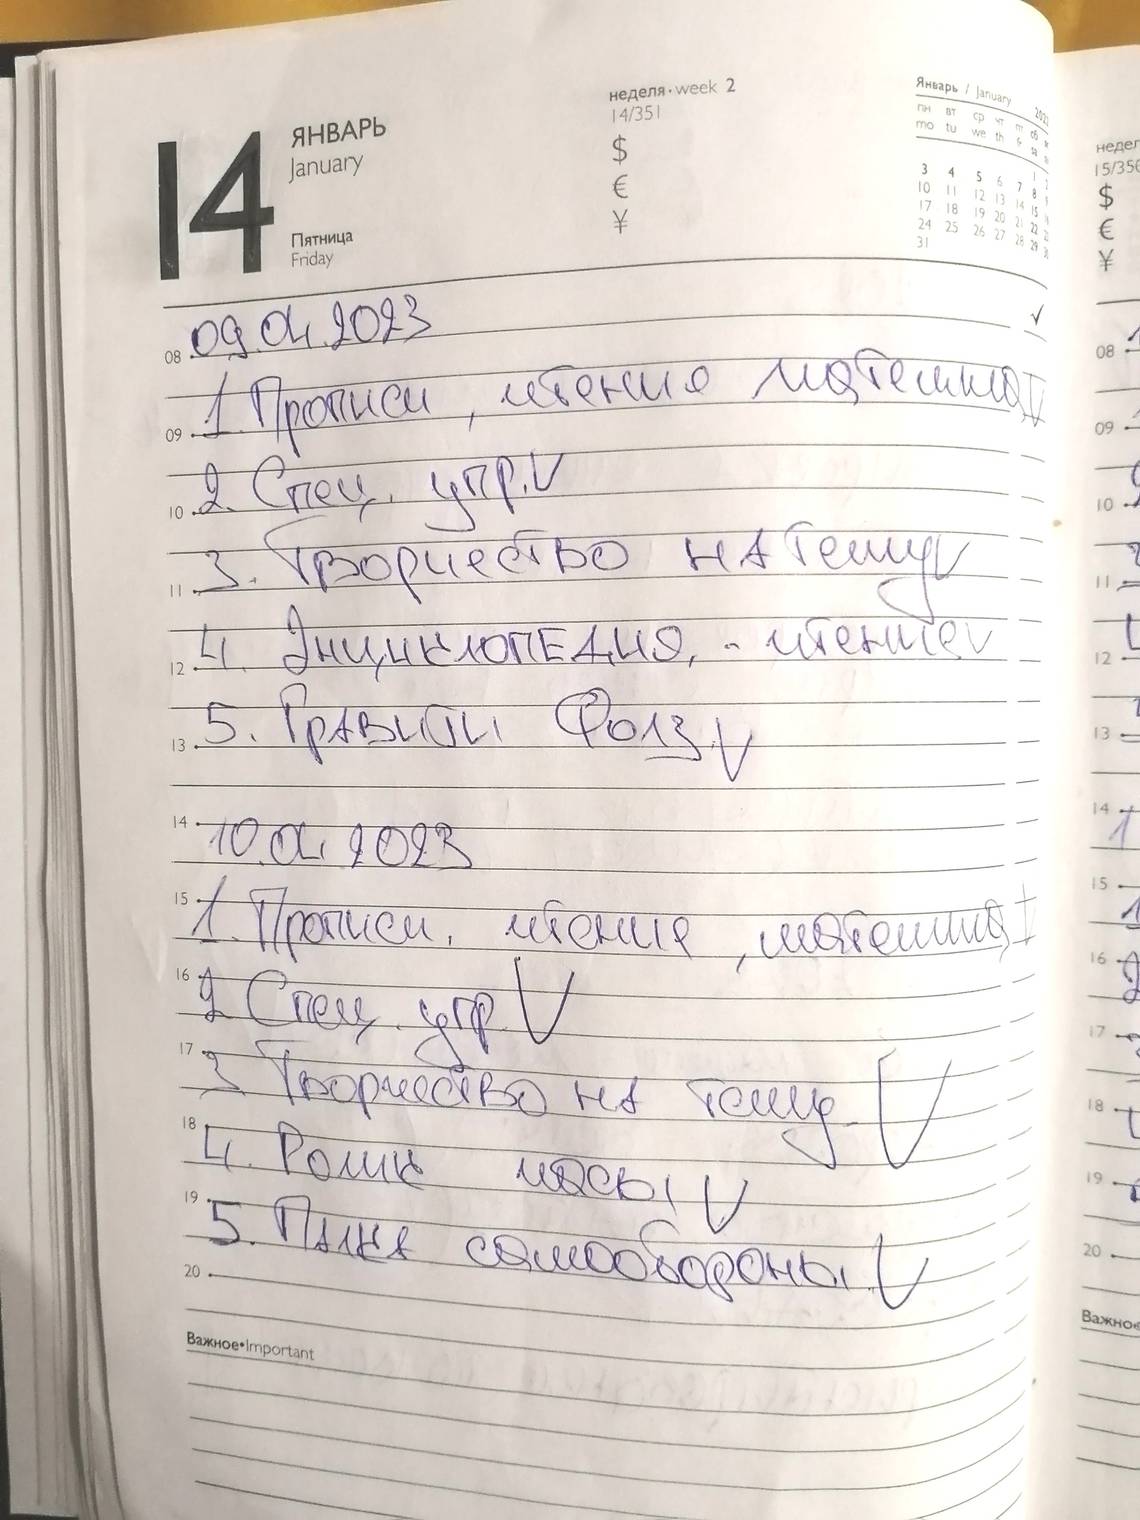 14
ЯНВАРЬ
January
Пятница
Friday
неделя•week 2
14/351
$
€
¥
Январь / January
пн вт ср чт пт сб
mo tu we th fr sa
1 2
3 4 5 6 7 8 9
10 11 12 13 14 15 16
17 18 19 20 21 22 23
24 25 26 27 28 29 30
31
✓
08 09.01.2023
09 1. Прописи, чтение математика V
10 2. Спец. упр. V
11 3. Творчество на тему V
12 4. Энциклопедия, - чтение V
13 5. Гравити Фолз V
14 10.01.2023
15 1. Прописи, чтение, математика V
16 2 Спец. упр. V
17 3 Творчество на тему V
18 4. Ролик V
19 5. Палка самообороны V
20
Важное•Important
недел
15/350
$
€
¥
08
09
10
11
12
13
14
15
16
17
18
19
20
Важно